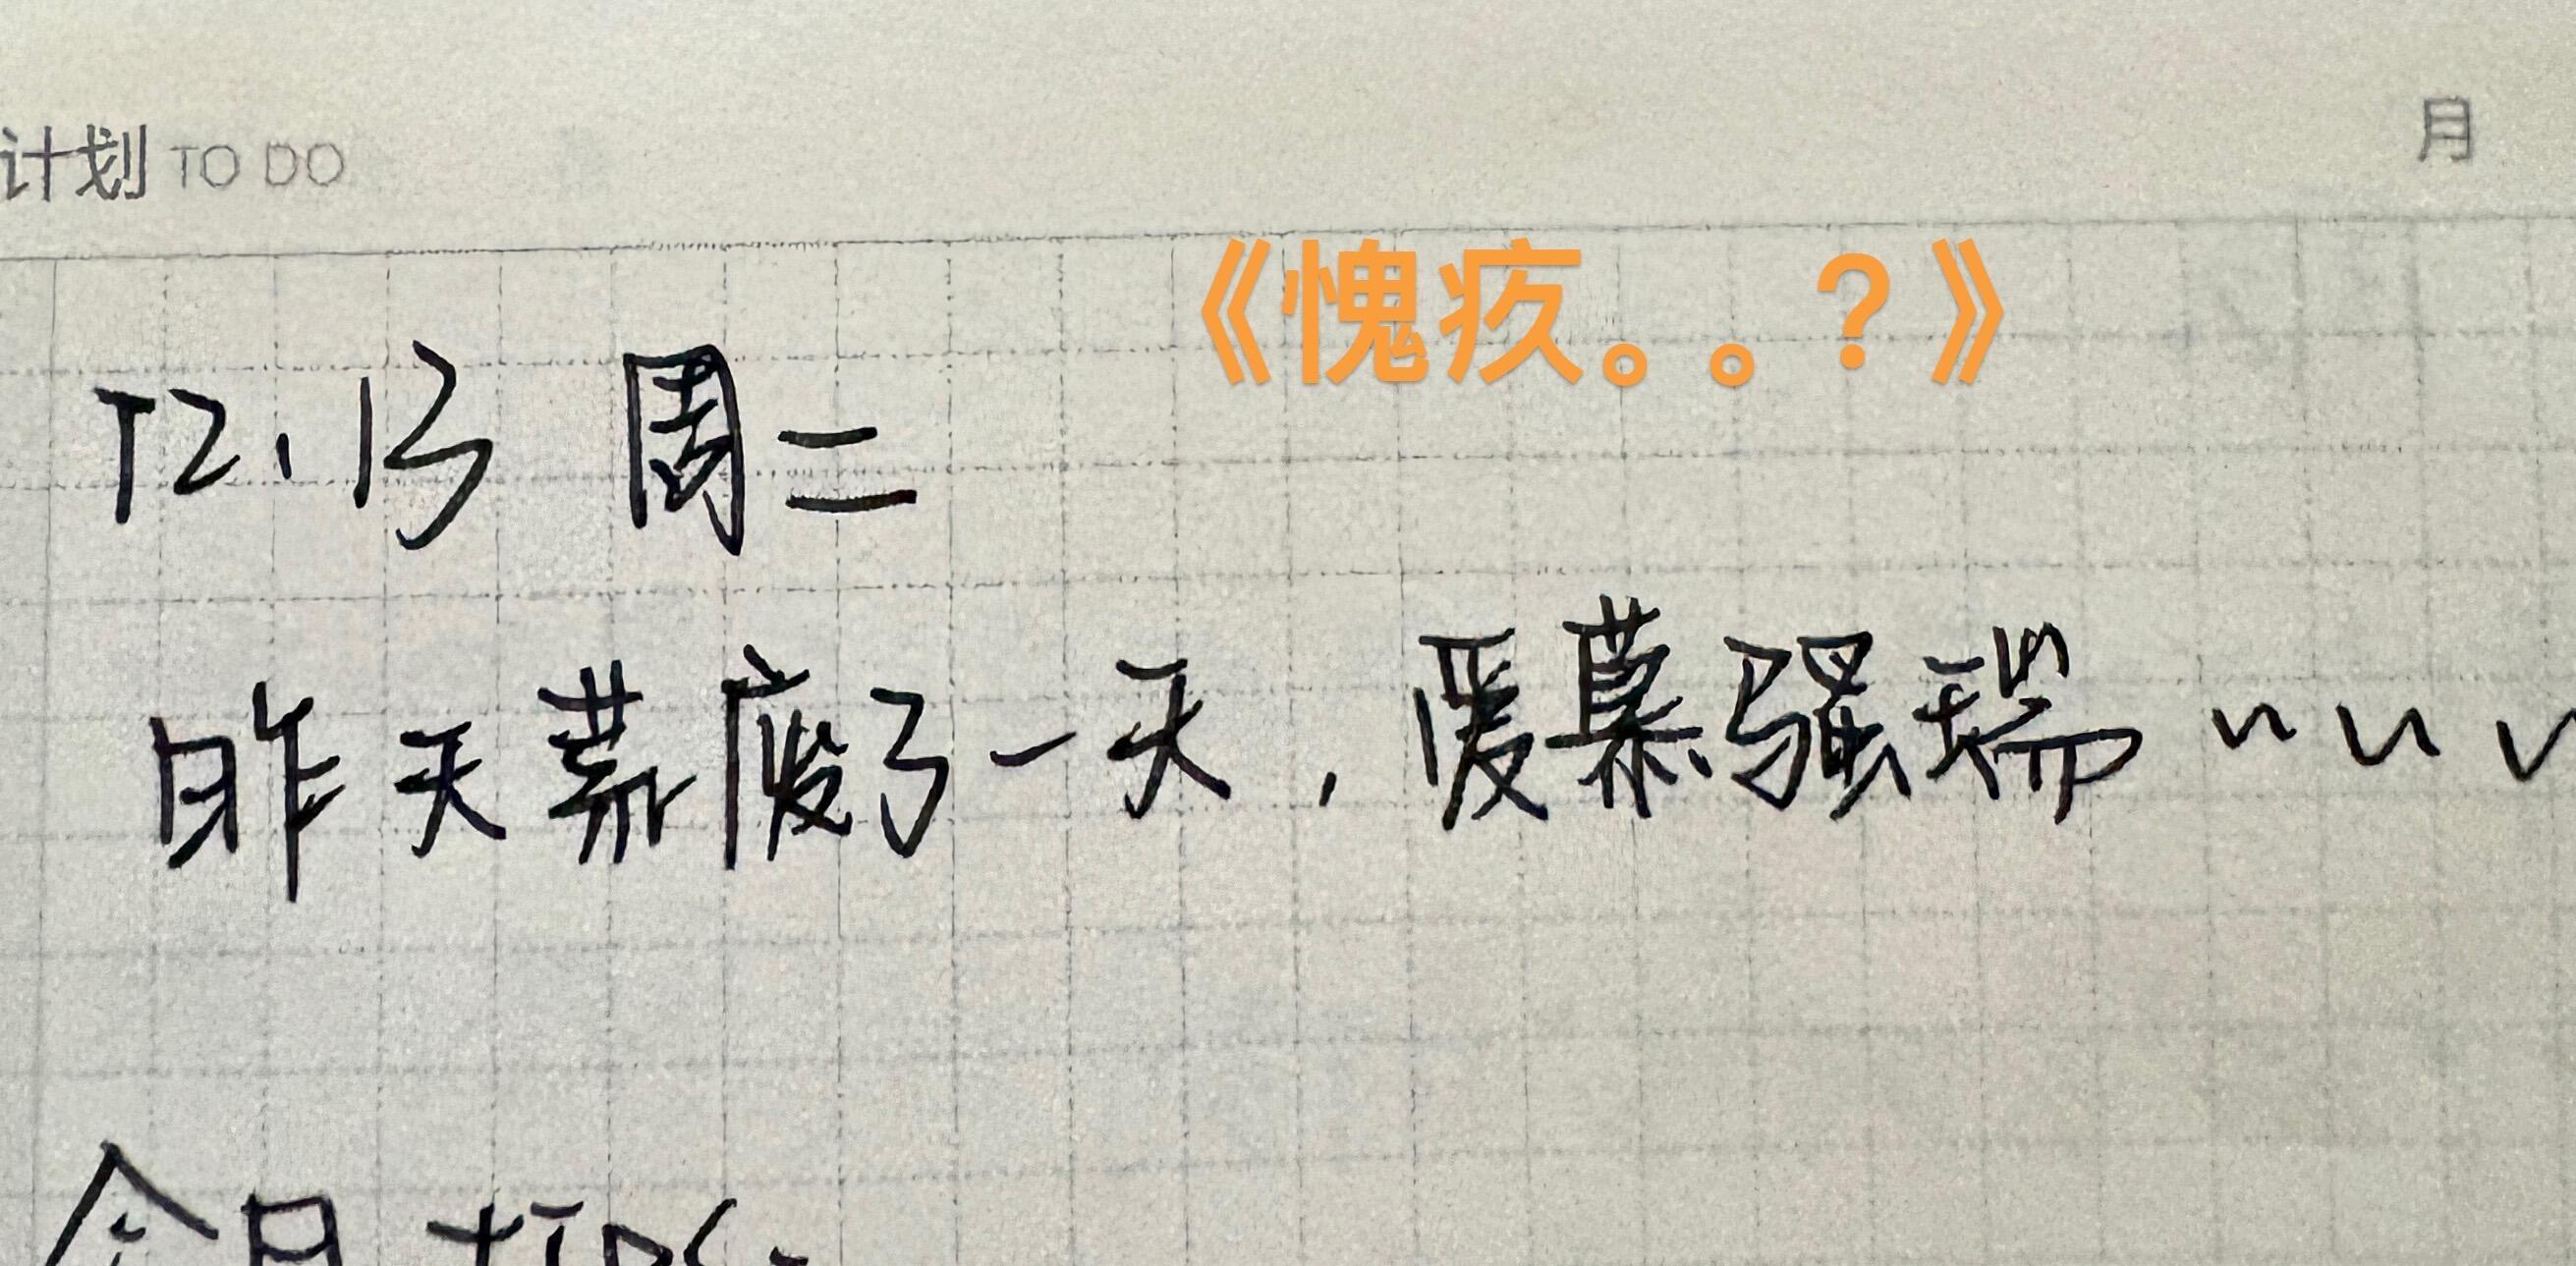 计划 TO DO
月
《愧疚。。？》
12.13 周二
昨天荒废了一天，爱慕骚瑞
今日